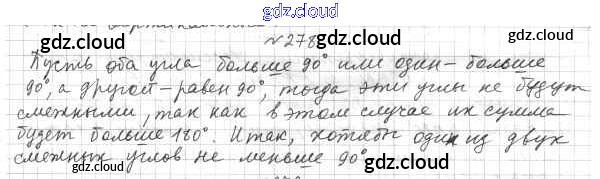 gdz.cloud
№278
gdz.cloud gdz.cloud
Пусть оба угла больше 90° или один – больше
90°, а другой – равен 90°, тогда эти углы не будут
gdz.cloud gdz.cloud
смежными, так как в этом случае их сумма
будет больше 180°. Итак, хотябы один из двух
gdz.cloud
смежных углов не меньше 90°
gdz.cloud gdz.cloud